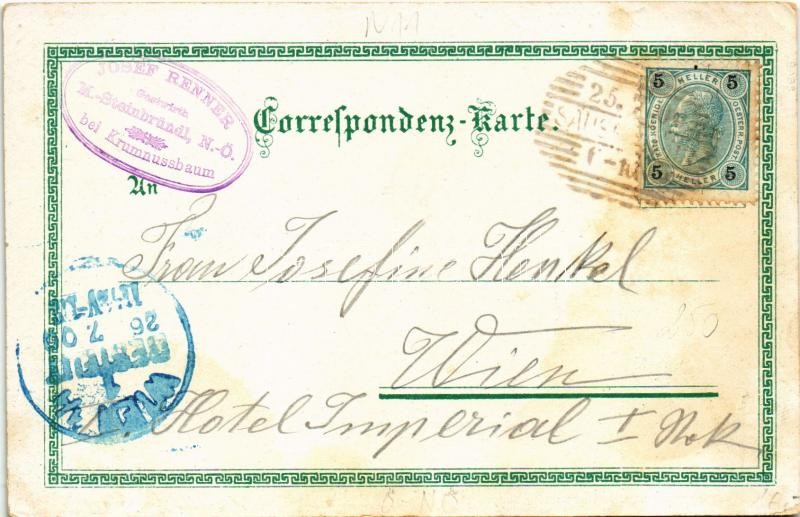 N11
JOSEF RENNER
Gastwirth
K.-Steinbründl, N.-Ö.
bei Krumnussbaum
Correspondenz-Karte.
An
25.
5 HELLER 5
KAIS. KOENIGL. OESTERR. POST
5 HELLER 5
Frau Josefine Henkel
250
Wien
Hotel Imperial I
26 7 0
WIEN